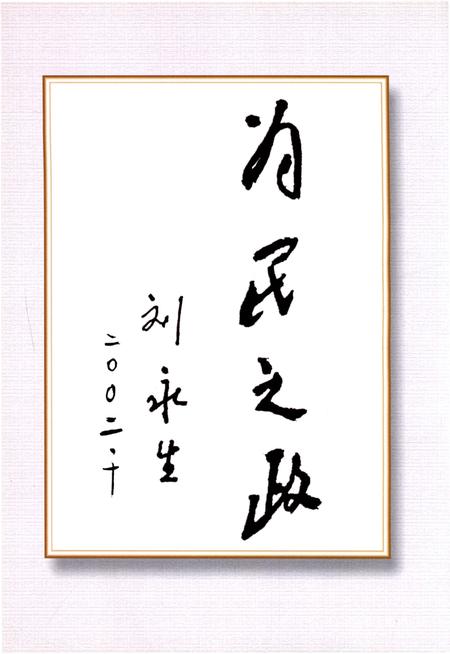 为民之政
刘永生
二〇〇二·十